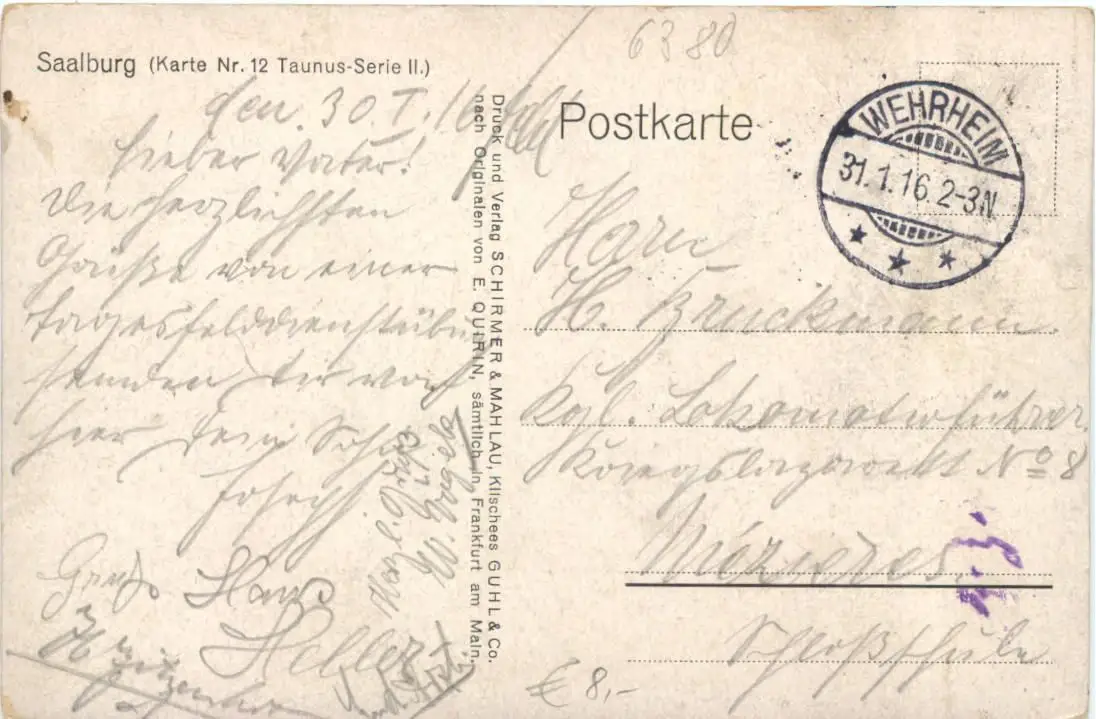 6380
Saalburg (Karte Nr. 12 Taunus-Serie II.)
Postkarte
WEHRHEIM
31.1.16.2-3N
den 30.I.16
Lieber Vater!
Die herzlichsten
Grüße von einer
Tagesfelddienstübu
senden Dir von
hier Dein Sohn
Joseph
Gruß Hans
Heller
Druck und Verlag SCHIRMER & MAHLAU, Klischees GUHL & Co.
nach Originalen von E. QUIRIN, sämtlich in Frankfurt am Main.
Herrn
H. Bruckmann
Kgl. Lokomotivführer
Kriegslazarett No 8
Mézières
Schloßschule
€ 8,-